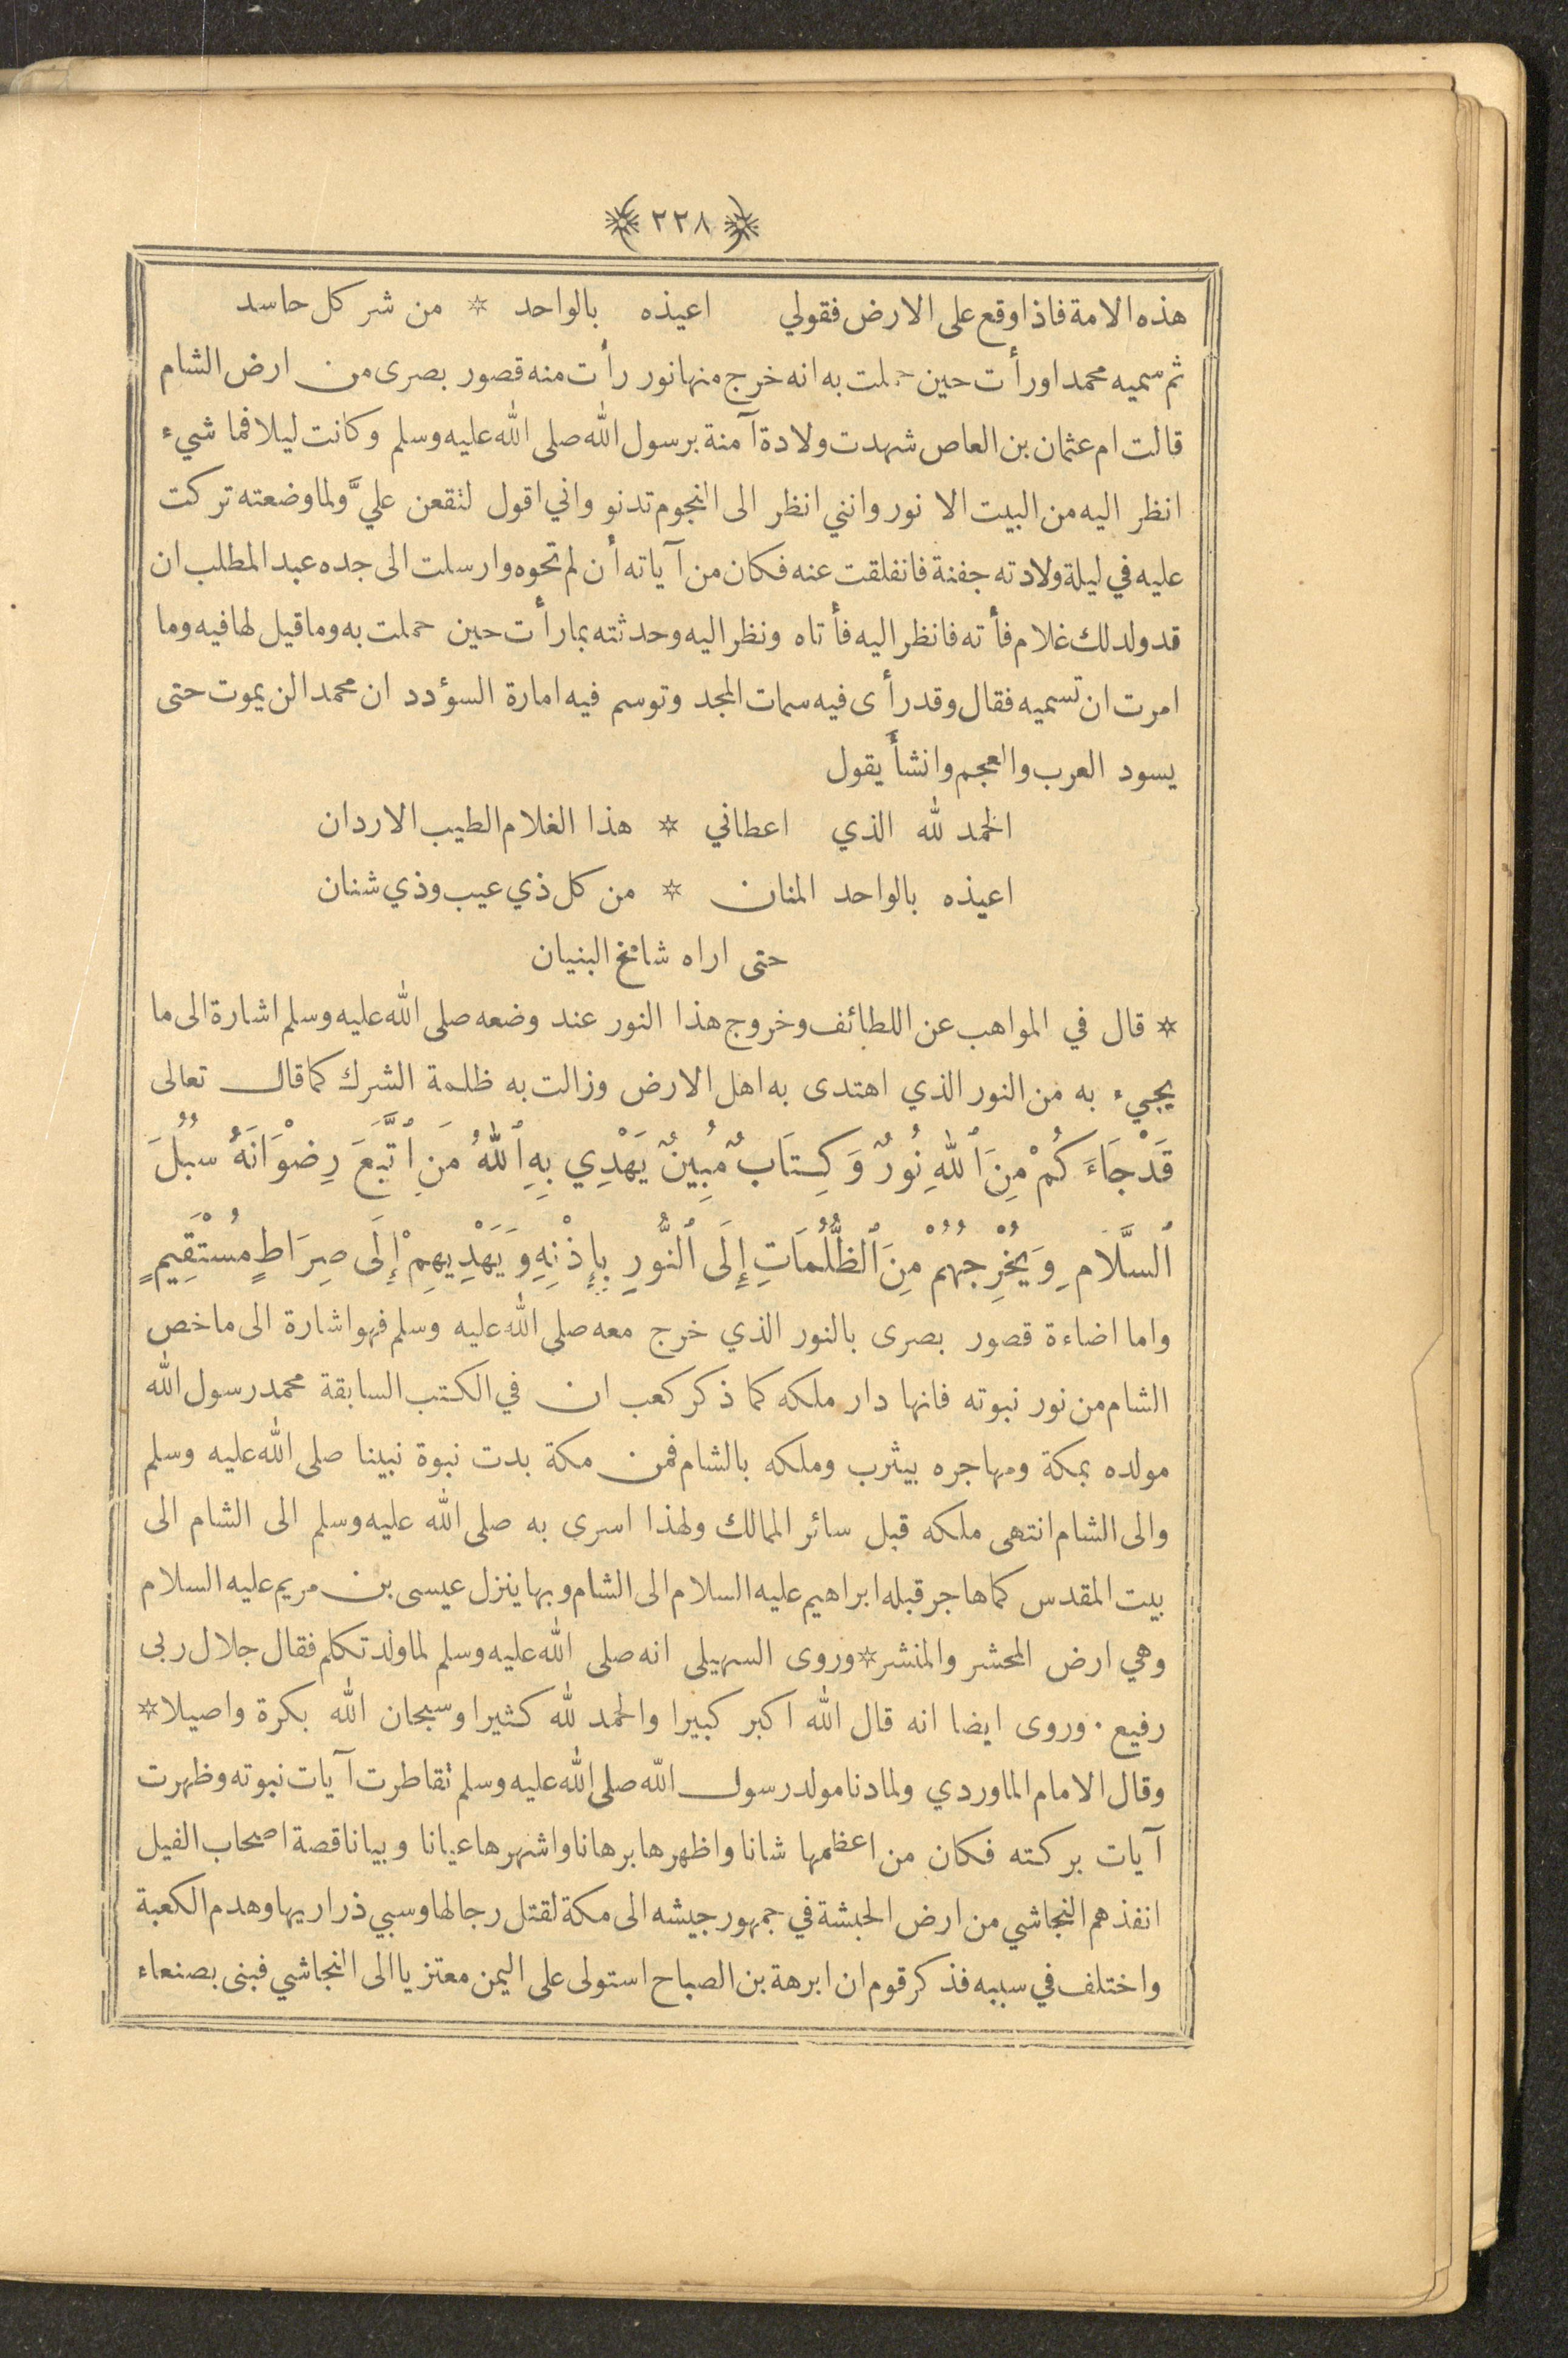 ﴿ ٢٢٨ ﴾
هذه الامة فاذا وقع على الارض فقولي اعيذه بالواحد * من شر كل حاسد
ثم سميه محمدا ورأت حين حملت به انه خرج منها نور رأت منه قصور بصرى من ارض الشام
قالت ام عثمان بن العاص شهدت ولادة آمنة برسول الله صلى الله عليه وسلم وكانت ليلا فما شيء
انظر اليه من البيت الا نور وانني انظر الى النجوم تدنو واني اقول لتقعن عليَّ ولما وضعته تركت
عليه في ليلة ولادته جفنة فانفلقت عنه فكان من آياته أن لم تحوه وارسلت الى جده عبد المطلب ان
قد ولد لك غلام فأته فانظر اليه فأتاه ونظر اليه وحدثته بما رأت حين حملت به وما قيل لها فيه وما
امرت ان تسميه فقال وقد رأى فيه سمات المجد وتوسم فيه امارة السؤدد ان محمدا لن يموت حتى
يسود العرب والعجم وانشأ يقول
الحمد لله الذي اعطاني * هذا الغلام الطيب الاردان
اعيذه بالواحد المنان * من كل ذي عيب وذي شنان
حتى اراه شامخ البنيان
* قال في المواهب عن اللطائف وخروج هذا النور عند وضعه صلى الله عليه وسلم اشارة الى ما
يجيء به من النور الذي اهتدى به اهل الارض وزالت به ظلمة الشرك كما قال تعالى
قَدْ جَاءَكُمْ مِنَ ٱللهِ نُورٌ وَكِتَابٌ مُبِينٌ يَهْدِي بِهِ ٱللهُ مَنِ ٱتَّبَعَ رِضْوَانَهُ سُبُلَ
ٱلسَّلَامِ وَيُخْرِجُهُمْ مِنَ ٱلظُّلُمَاتِ إِلَى ٱلنُّورِ بِإِذْنِهِ وَيَهْدِيهِمْ إِلَى صِرَاطٍ مُسْتَقِيمٍ
واما اضاءة قصور بصرى بالنور الذي خرج معه صلى الله عليه وسلم فهو اشارة الى ما خص
الشام من نور نبوته فانها دار ملكه كما ذكر كعب ان في الكتب السابقة محمد رسول الله
مولده بمكة ومهاجره بيثرب وملكه بالشام فمن مكة بدت نبوة نبينا صلى الله عليه وسلم
والى الشام انتهى ملكه قبل سائر الممالك ولهذا اسرى به صلى الله عليه وسلم الى الشام الى
بيت المقدس كما هاجر قبله ابراهيم عليه السلام الى الشام وبها ينزل عيسى بن مريم عليه السلام
وهي ارض المحشر والمنشر * وروى السهيلى انه صلى الله عليه وسلم لما ولد تكلم فقال جلال ربى
رفيع . وروى ايضا انه قال الله اكبر كبيرا والحمد لله كثيرا وسبحان الله بكرة واصيلا *
وقال الامام الماوردي ولما دنا مولد رسول الله صلى الله عليه وسلم تقاطرت آيات نبوته وظهرت
آيات بركته فكان من اعظمها شانا واظهرها برهانا واشهرها عيانا وبيانا قصة اصحاب الفيل
انفذهم النجاشي من ارض الحبشة في جمهور جيشه الى مكة لقتل رجالها وسبي ذراريها وهدم الكعبة
واختلف في سببه فذكر قوم ان ابرهة بن الصباح استولى على اليمن معتزيا الى النجاشي فبنى بصنعاء